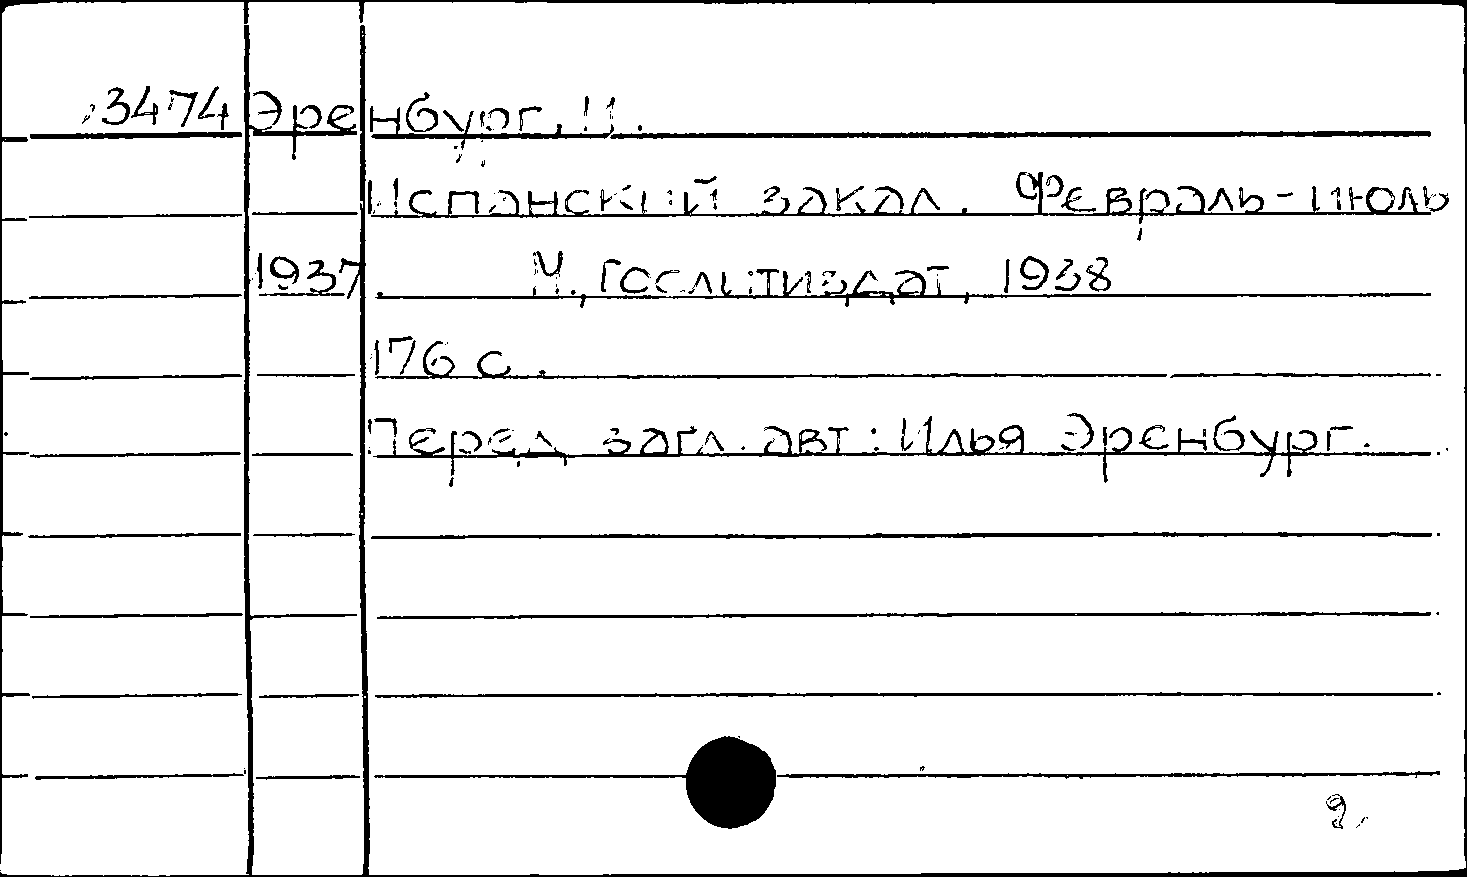 3474 Эренбург, И.
Испанский закал. Февраль-июль
1937. М., Гослитиздат, 1938
176 с.
Перед загл. авт: Илья Эренбург.